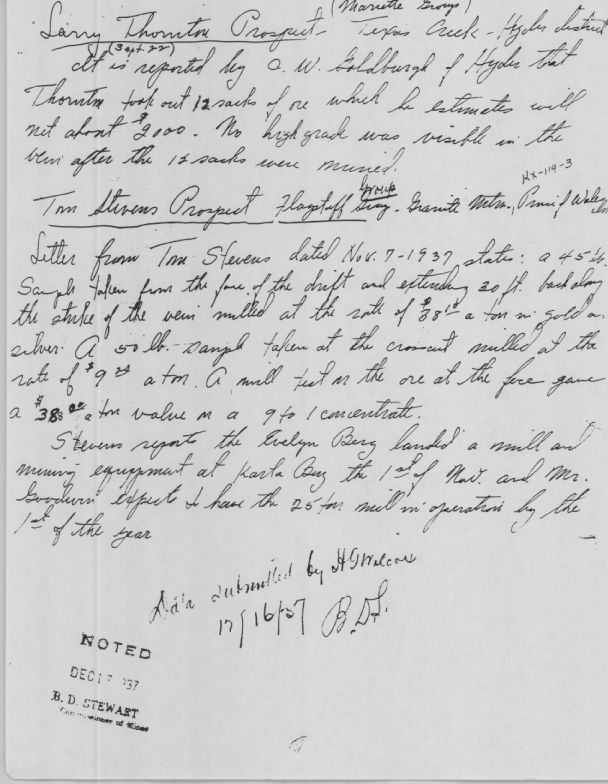 (Mariette Group)
Larry Thornton Prospect - Texas Creek - Hyder district
(Sept. 22)
It is reported by A. W. Goldburgh of Hyder that
Thornton took out 12 sacks of ore which he estimates will
net about $2000. No high grade was visible in the
vein after the 12 sacks were mined.
KX-119-3
Tom Stevens Prospect Flagstaff Group - Granite Mtn., Prince of Wales
Letter from Tom Stevens dated Nov. 7-1937 states: a 45 lb.
Sample taken from the face of the drift and extending 30 ft. back along
the strike of the vein milled at the rate of $38 a ton in gold a.
silver. A 50 lb. sample taken at the crosscut milled at the
rate of $9 a ton. A mill test on the ore at the face gave
a $38 00 a ton value on a 9 to 1 concentrate.
Stevens reports the Evelyn Berg landed a mill and
mining equippment at Karta Bay the 1st of Nov. and Mr.
Goodwin expects to have the 25 ton mill in operation by the
1st of the year
Data submitted by HGWilcox
12/16/37 B.D.S.
NOTED
DEC 17 '37
B. D. STEWART
Commissioner of Mines